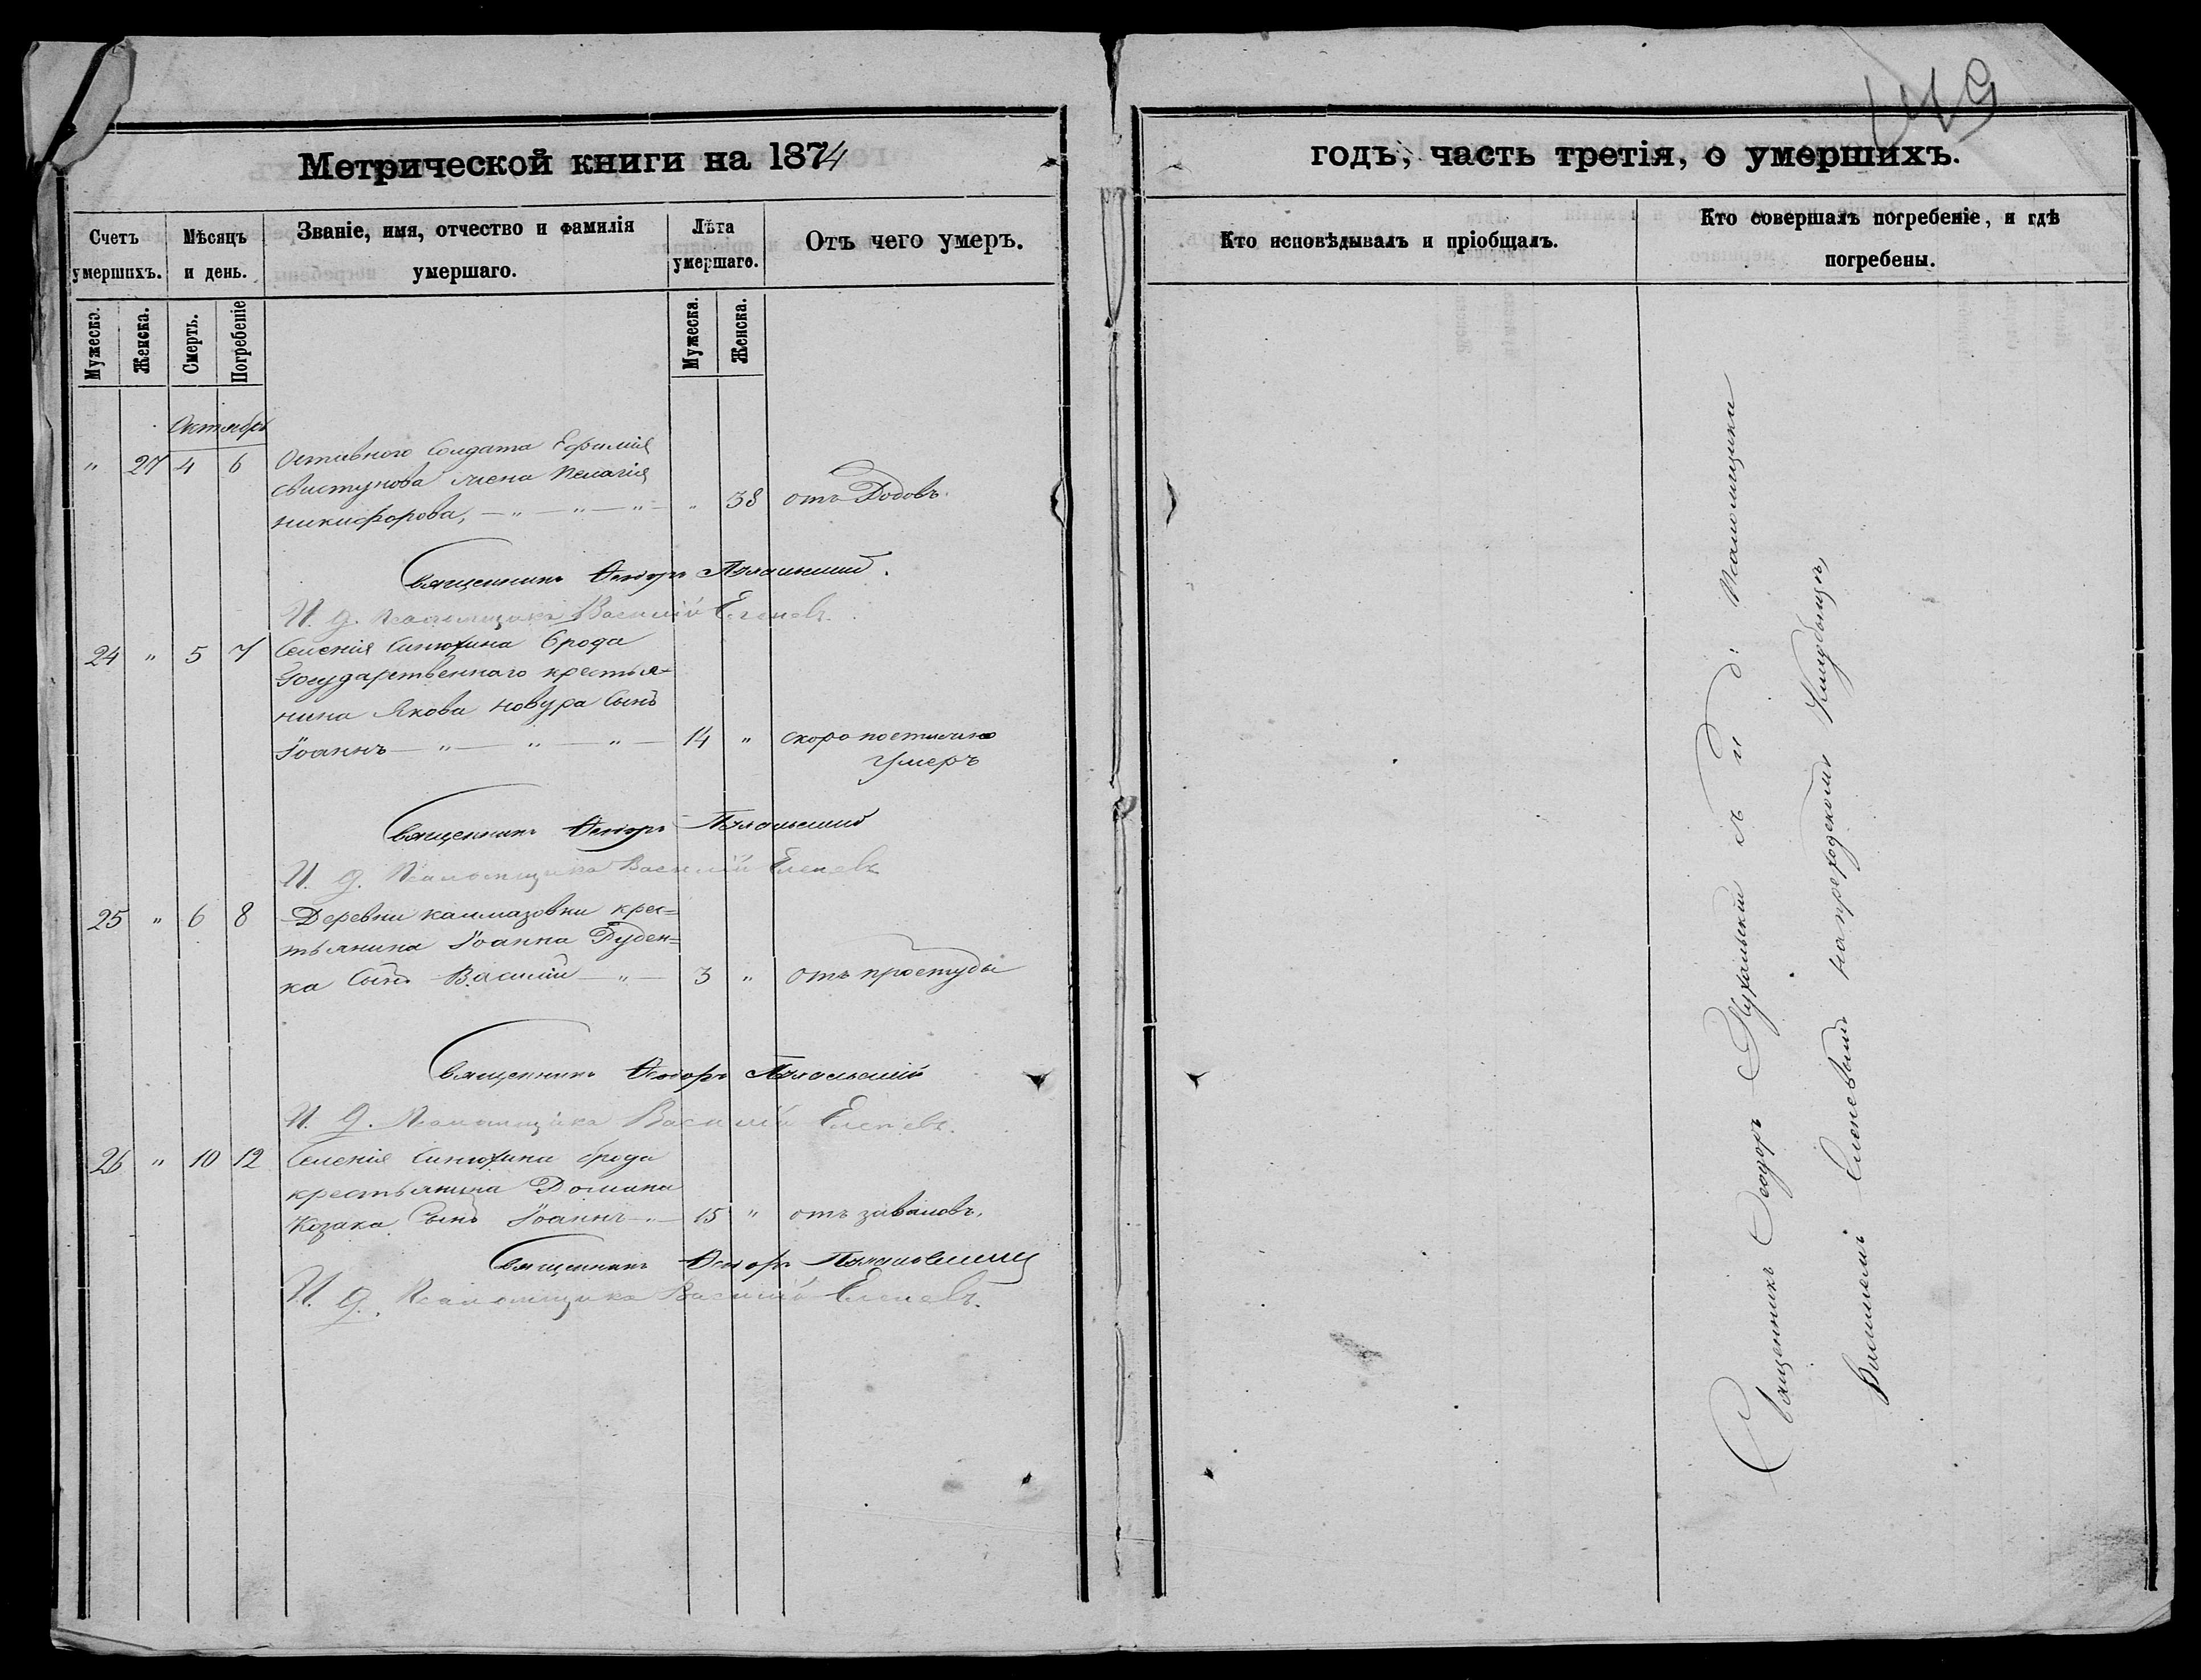 449
Метрической книги на 1874
Счетъ умершихъ.
Мѣсяцъ и день.
Званіе, имя, отчество и фамилія умершаго.
Лѣта умершаго.
Отъ чего умеръ.
Мужеска.
Женска.
Смерть.
Погребеніе
Мужеска.
Женска.
Октябрь
" 27 4 6 Солдата Ефимія
жена Пелагія
Никифорова, — " — " — " — " 38 отъ Родовъ.
Священникъ Ѳеодоръ
И. д. Псаломщика Василій Еленевъ.
24 " 5 7 Селенія Синюхина Брода
Государственнаго крестья-
нина Якова сынъ
Іоаннъ — " — " — " — 14 " скоропостижно
умеръ
Священникъ Ѳеодоръ
И. д. Псаломщика Василій Еленевъ
25 " 6 8 Деревни Калмазовки крес=
тьянина Іоанна Руден=
ка сынъ Василій — " — 3 " отъ простуды
Священникъ Ѳеодоръ
И. д. Псаломщика Василій Еленевъ.
26 " 10 12 Селенія Синюхина брода
крестьянина Романа
Козака сынъ Іоаннъ — " — 15 " отъ заваловъ.
Священникъ Ѳеодоръ
И. д. Псаломщика Василій Еленевъ.
годъ, часть третія, о умершихъ.
Кто исповѣдывалъ и пріобщалъ.
Кто совершалъ погребеніе, и гдѣ погребены.
Священникъ Ѳеодоръ съ И. д: Псаломщика
Василіемъ Еленевымъ на приходскомъ Кладбищѣ,